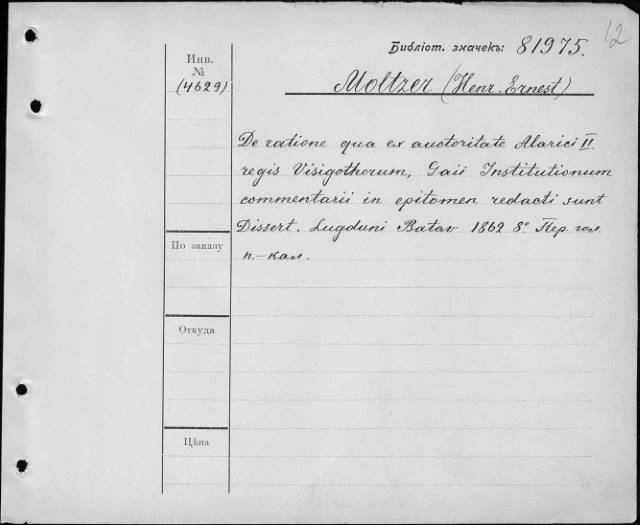 12
Библіот. значекъ: 81975.
Инв.
№
(4629)
Moltzer (Henr. Ernest)
De ratione qua ex auctoritate Alarici II.
regis Visigothorum, Gaii Institutionum
commentarii in epitomen redacti sunt
Dissert. Lugduni Batav 1862 8° Пер. гол.
п.-кал.
По заказу
Откуда
Цѣна